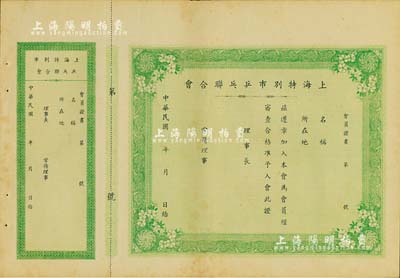 上海陽明拍賣
上海特別市乒乓聯合會
會員證書 第 號
名稱
所在地
茲遵章加入本會為會員經
審查合格准予入會此證
理事長
常務理事
中華民國 年 月 日給
第 號
上海特別市
乒乓聯合會
會員證書 第 號
名稱
所在地
理事長
常務理事
中華民國 年 月 日給
上海陽明拍賣